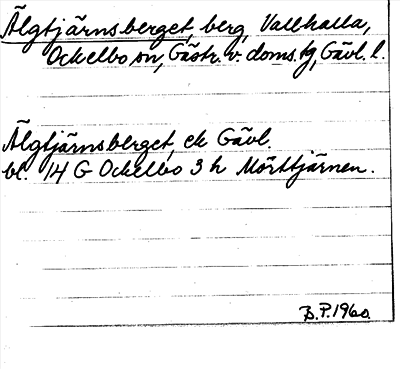 Älgtjärnsberget, berg, Vallhalla,
Ockelbo sn, Gästr. v. doms. tg, Gävl. l.
Älgtjärnsberget, ek Gävl.
bl. 14 G Ockelbo 3 h Mörttjärnen.
B.P. 1960.